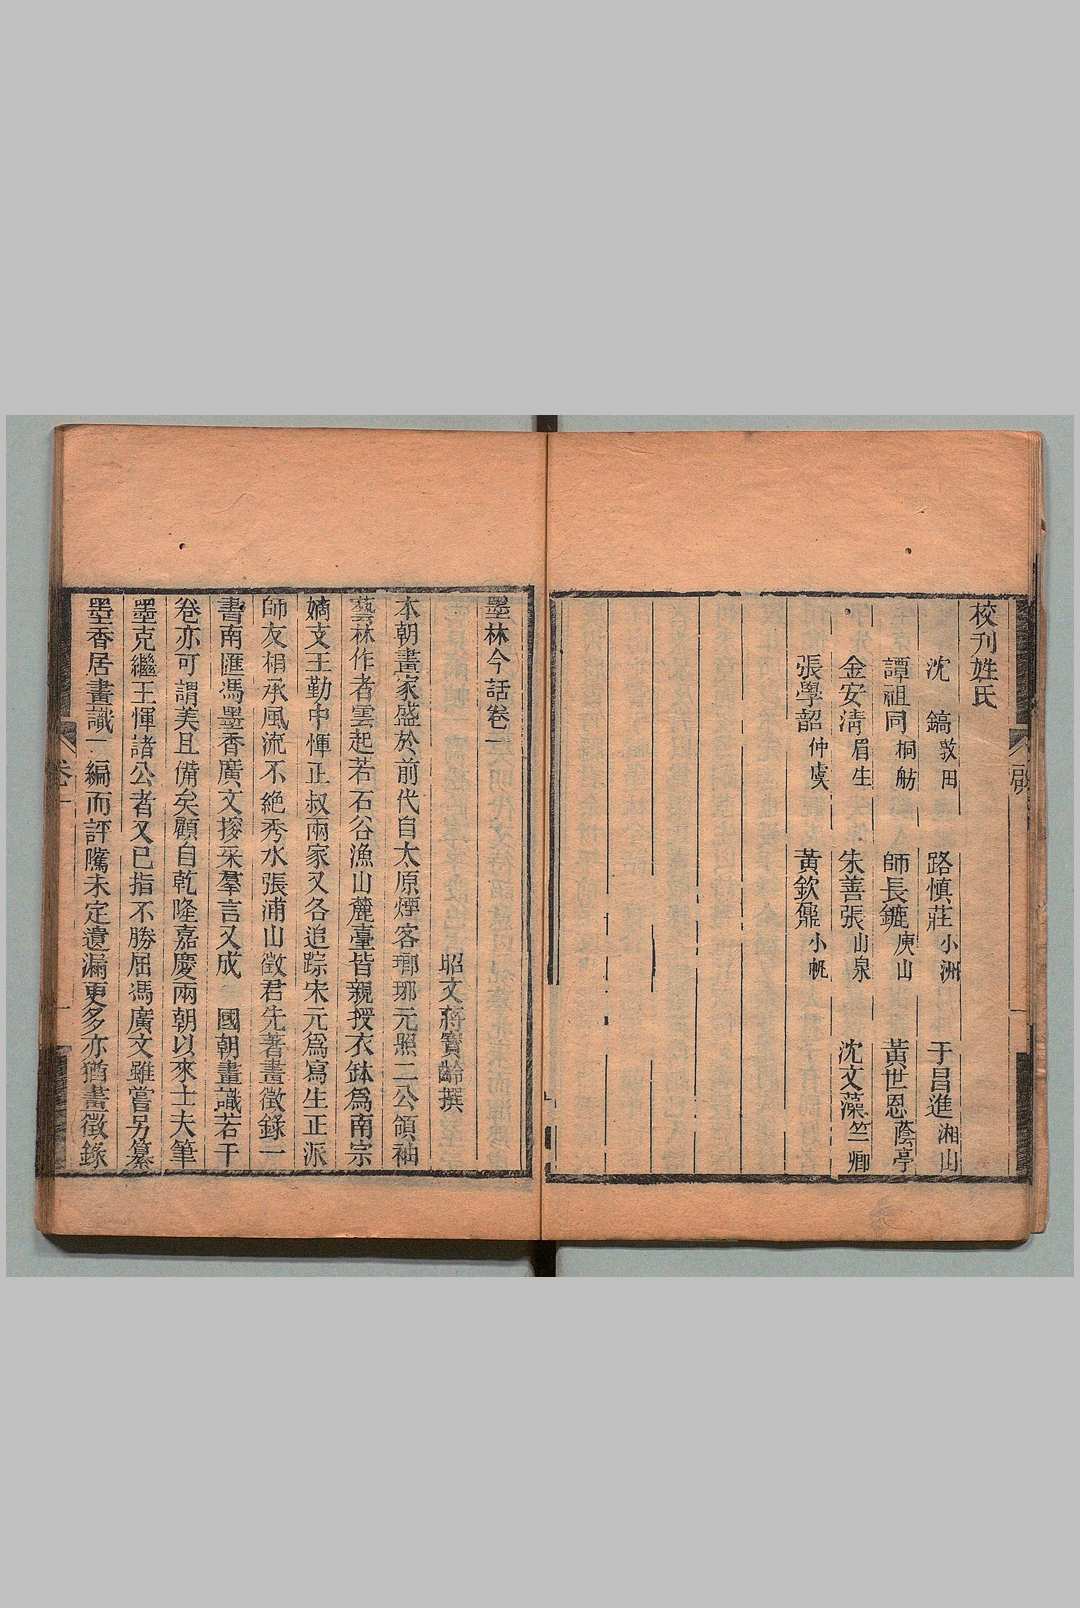 校刊姓氏
沈　鎬敦田　路慎莊小洲　于昌進湘山
譚祖同桐舫　師長鑣庾山　黃世恩蔭亭
金安清眉生　朱善張山泉　沈文藻竺卿
張學韶仲虞　黃欽鼐小帆
墨林今話卷一
昭文蔣寶齡撰
本朝畫家盛於前代自太原煙客瑯琊元照二公領袖
藝林作者雲起若石谷漁山麓臺皆親授衣鉢爲南宗
嫡支王勤中惲正叔兩家又各追踪宋元爲寫生正派
師友相承風流不絶秀水張浦山徵君先著畫徵錄一
書南匯馮墨香廣文搜采羣言又成　國朝畫識若干
卷亦可謂美且備矣顧自乾隆嘉慶兩朝以來士夫筆
墨克繼王惲諸公者又已指不勝屈馮廣文雖嘗另纂
墨香居畫識一編而評隲未定遺漏更多亦猶畫徵錄
卷一
一